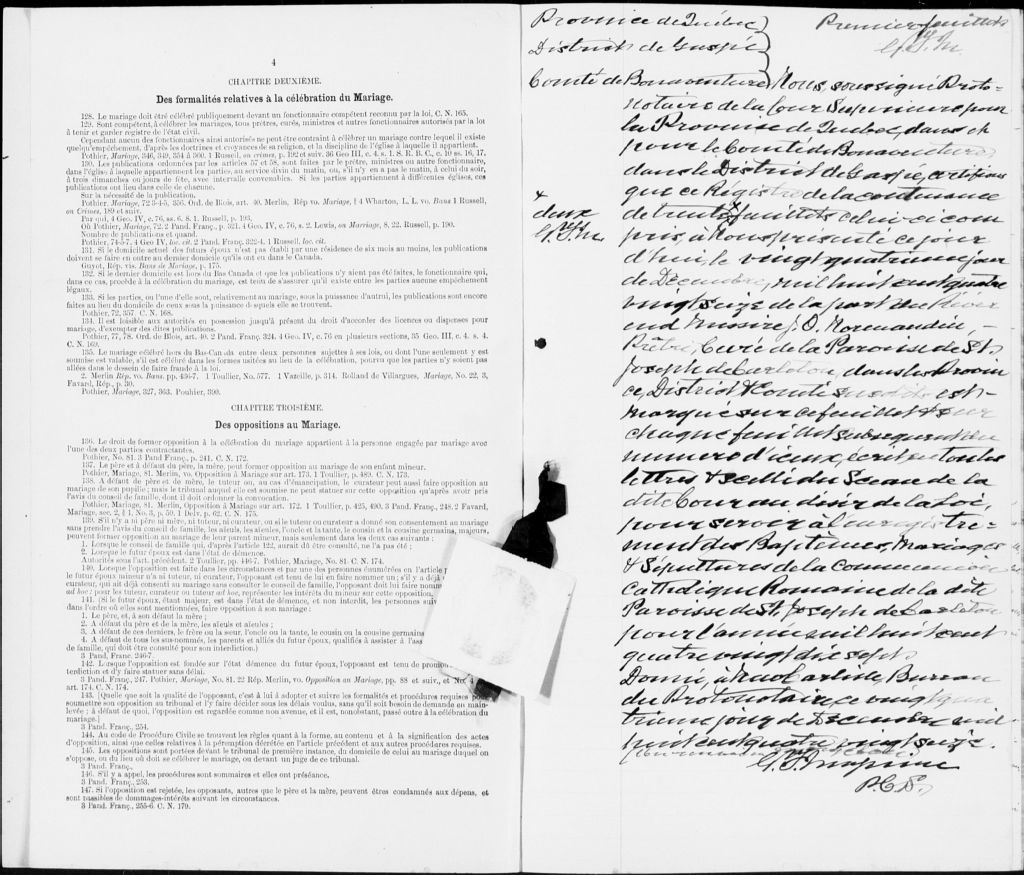 4
CHAPITRE DEUXIÈME.
Des formalités relatives à la célébration du Mariage.
128. Le mariage doit être célébré publiquement devant un fonctionnaire compétent reconnu par la loi, C. N. 165.
129. Sont compétent, à célébrer les mariages, tous prêtres, curés, ministres et autres fonctionnaires autorisés par la loi
à tenir et garder registre de l'état civil.
Cependant aucun des fonctionnaires ainsi autorisés ne peut être contraint à célébrer un mariage contre lequel il existe
quelqu'empêchement, d'après les doctrines et croyances de sa religion, et la discipline de l'église à laquelle il appartient.
Pothier, Mariage, 346, 349, 354 à 360. 1 Russell, on crimes, p. 192 et suiv. 36 Geo III, c. 4. s. 1. S. R. B. C., c. 10 ss. 16, 17.
130. Les publications ordonnées par les articles 57 et 58, sont faites par le prêtre, ministre ou autre fonctionnaire,
dans l'église à laquelle appartiennent les parties, au service divin du matin, ou, s'il n'y en a pas le matin, à celui du soir,
à trois dimanches ou jours de fête, avec intervalle convenables. Si les parties appartiennent à différentes églises, ces
publications ont lieu dans celle de chacune.
Sur la nécessité de la publication.
Pothier, Mariage, 72-3-4-5, 356. Ord. de Blois, art. 40. Merlin, Rép vo. Mariage, § 4 Wharton, L. L. vo. Bans 1 Russell,
on Crimes, 189 et suiv.
Par qui, 4 Geo. IV, c. 76, ss. 6. 8. 1. Russell, p. 193.
Où Pothier, Mariage, 72. 2 Pand. Franç., p. 321. 4 Geo. IV, c. 76, s. 2. Lewis, on Marriage, 8, 22. Russell, p. 190.
Nombre de publications et quand.
Pothier, 74-5-7. 4 Geo IV, loc. cit. 2 Pand. Franç, 322-4. 1 Russell, loc. cit.
131. Si le domicile actuel des futurs époux n'est pas établi par une résidence de six mois au moins, les publications
doivent se faire en outre au dernier domicile qu'ils ont eu dans le Canada.
Guyot, Rép. vis. Bans de Mariage, p. 175.
132. Si le dernier domicile est hors du Bas Canada et que les publications n'y aient pas été faites, le fonctionnaire qui,
dans ce cas, procède à la célébration du mariage, est tenu de s'assurer qu'il existe entre les parties aucune empêchement
légaux.
133. Si les parties, ou l'une d'elle sont, relativement au mariage, sous la puissance d'autrui, les publications sont encore
faites au lieu du domicile de ceux sous la puissance desquels elle se trouvent.
Pothier, 72, 357. C. N. 168.
134. Il est loisible aux autorités en possession jusqu'à présent du droit d'accorder des licences ou dispenses pour
mariage, d'exempter des dites publications.
Pothier, 77, 78. Ord. de Blois, art. 40. 2 Pand. Franç. 324. 4 Geo. IV, c. 76 en plusieurs sections, 35 Geo. III, c. 4. s. 4.
C. N. 169.
135. Le mariage célébré hors du Bas-Canada entre deux personnes sujettes à ses lois, ou dont l'une seulement y est
soumise est valable, s'il est célébré dans les formes usitées au lieu de la célébration, pourvu que les parties n'y soient pas
allées dans le dessein de faire fraude à la loi.
2. Merlin Rép. vo. Bans. pp. 436-7. 1 Toullier, No. 577. 1 Vazeille, p. 314. Rolland de Villargues, Mariage, No. 22, 3,
Favard, Rép., p. 30.
Pothier, Mariage, 327, 363. Pouhier, 390.
CHAPITRE TROISIÈME.
Des oppositions au Mariage.
136. Le droit de former opposition à la célébration du mariage appartient à la personne engagée par mariage avec
l'une des deux parties contractantes.
Pothier, No. 81. 3 Pand Franç., p. 241. C. N. 172.
137. Le père et à défaut du père, la mère, peut former opposition au mariage de son enfant mineur.
Pothier, Mariage, 81. Merlin, vo. Opposition à Mariage sur art. 173. 1 Toullier, p. 489. C. N. 173.
138. A défaut de père et de mère, le tuteur ou, au cas d'émancipation, le curateur peut aussi faire opposition au
mariage de son pupille; mais le tribunal auquel elle est soumise ne peut statuer sur cette opposition qu'après avoir pris
l'avis du conseil de famille, dont il doit ordonner la convocation.
Pothier, Mariage, 81. Merlin, Opposition à Mariage sur art. 172. 1 Toullier, p. 425, 490. 3 Pand. Franç., 248. 2 Favard,
Mariage, sec. 2, § 1. No. 3, p. 50. 1 Delv. p. 62. C. N. 175.
139. S'il n'y a ni père ni mère, ni tuteur, ni curateur, ou si le tuteur ou curateur a donné son consentement au mariage
sans prendre l'avis du conseil de famille, les aïeuls, les aïeules, l'oncle et la tante, le cousin et la cousine germains, majeurs,
peuvent former opposition au mariage de leur parent mineur, mais seulement dans les deux cas suivants:
1. Lorsque le conseil de famille qui, d'après l'article 122, aurait dû être consulté, ne l'a pas été;
2. Lorsque le futur époux est dans l'état de démence.
Autorités sous l'art. précédent. 2 Toullier, pp. 446-7. Pothier, Mariage, No. 81. C. N. 174.
140. Lorsque l'opposition est faite dans les circonstances et par une des personnes énumérées en l'article
le futur époux mineur n'a ni tuteur, ni curateur, l'opposant est tenu de lui en faire nommer un; s'il y a déjà
curateur, qui ait déjà consenti au mariage sans consulter le conseil de famille, l'opposant doit lui faire nomm
ad hoc: pour les tuteur, curateur ou tuteur ad hoc, représenter les intérêts du mineur sur cette opposition.
141. (Si le futur époux, étant majeur, est dans l'état de démence, et non interdit, les personnes suiv
dans l'ordre où elles sont mentionnées, faire opposition à son mariage:
1. Le père, et, à son défaut la mère;
2. A défaut du père et de la mère, les aïeuls et aïeules;
3. A défaut de ces derniers, le frère ou la sœur, l'oncle ou la tante, le cousin ou la cousine germains
4. A défaut de tous les sus-nommés, les parents et alliés du futur époux, qualifiés à assister à l'ass
de famille, qui doit être consulté pour son interdiction.)
3 Pand. Franc. 246-7.
142. Lorsque l'opposition est fondée sur l'état démence du futur époux, l'opposant est tenu de promou
terdiction et d'y faire statuer sans délai.
3 Pand. Franç., 247. Pothier, Mariage, No. 81. 22 Rép. Merlin, vo. Opposition au Mariage, pp. 88 et suiv., et No. 4
art. 174. C. N. 174.
143. [Quelle que soit la qualité de l'opposant, c'est à lui à adopter et suivre les formalités et procédures requises pour
soumettre son opposition au tribunal et l'y faire décider sous les délais voulus, sans qu'il soit besoin de demande en main-
levée; à défaut de quoi, l'opposition est regardée comme non avenue, et il est, nonobstant, passé outre à la célébration du
mariage.]
3 Pand. Franç., 254.
144. Au code de Procédure Civile se trouvent les règles quant à la forme, au contenu et à la signification des actes
d'opposition, ainsi que celles relatives à la péremption décrétée en l'article précédent et aux autres procédures requises.
145. Les oppositions sont portées devant le tribunal de première instance, du domicile de celui au mariage duquel on
s'oppose, ou du lieu où doit se célébrer le mariage, ou devant un juge de ce tribunal.
3 Pand. Franç.,
146. S'il y a appel, les procédures sont sommaires et elles ont préséance.
3 Pand. Franç., 253.
147. Si l'opposition est rejetée, les opposants, autres que le père et la mère, peuvent être condamnés aux dépens, et
sont passibles de dommages-intérêts suivant les circonstances.
3 Pand. Franç., 255-6. C. N. 179.
Province de Québec
Premier feuillet
District de Gaspé
Comté de Bonaventure
Nous, soussigné Proto-
notaire de la Cour Supérieure pour
la Province de Québec, dans et
pour le Comté de Bonaventure
dans le District de Gaspé, certifions
que ce Registre de la contenance
x
deux
de trente x feuillets celui-ci com
pris, à Nous présenté ce jour
d'hui, le vingt quatrième jour
de Décembre, mil huit cent quatre
vingt seize de la part du Révér
end Messire J. O. Normandin, -
Prêtre, Curé de la Paroisse de St.
Joseph de Carleton, dans les Provin
ce, District & Comté susdits est
marqué sur ce feuillet & sur
chaque feuillet subsequent du
numero d'iceux, écrit en toutes
lettres & scellé du Sceau de la
dite Cour au désir de la Loi,
pour servir à l'enregistre-
ment des Baptêmes, Mariages
& Sépultures de la Communion
Catholique Romaine de la dite
Paroisse de St. Joseph de Carleton
pour l'année mil huit cent
quatre vingt dix sept.
Donné, à New Carlisle, Bureau
du Protonotaire, ce vingt qua
trieme jour de Décembre mil
huit cent quatre vingt seize.
P. C. S.